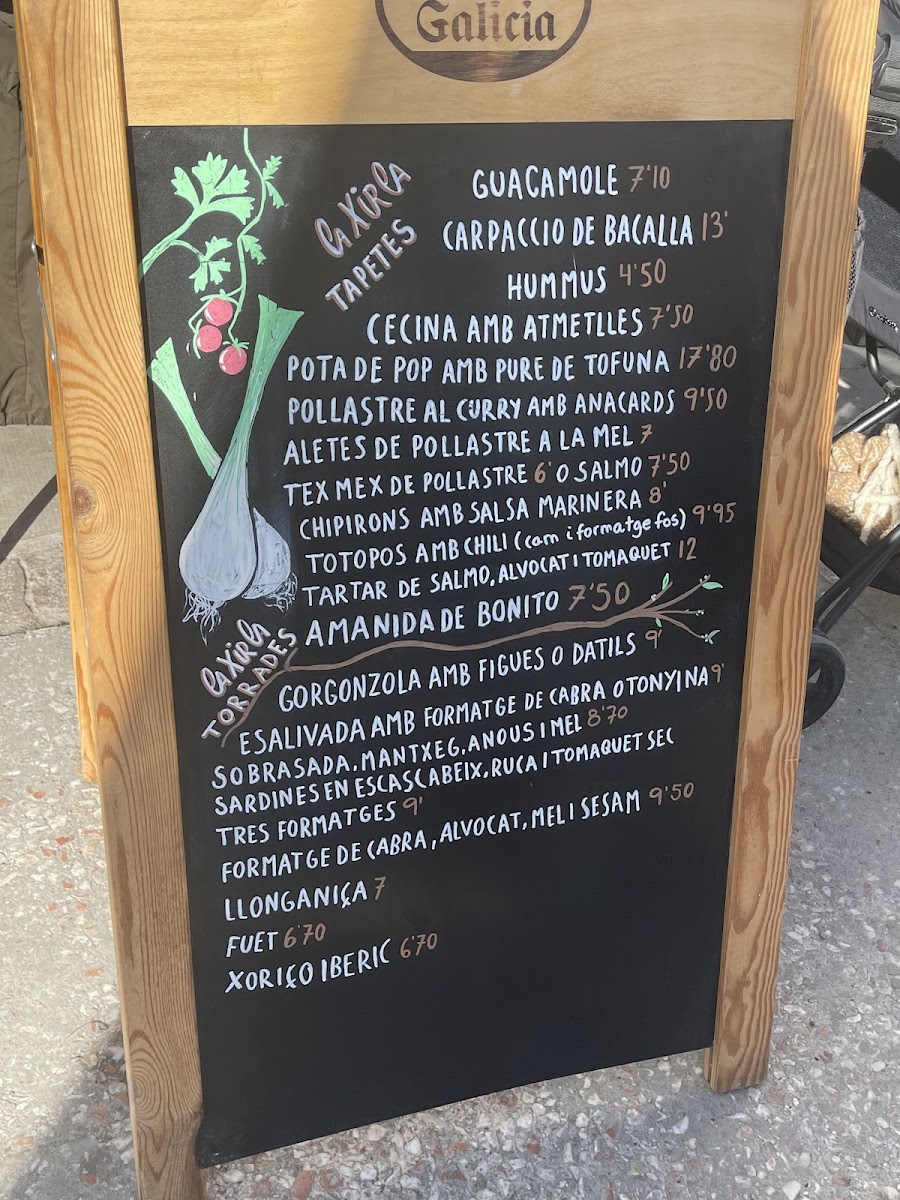 Galicia
la xirla
TAPETES
GUACAMOLE 7'10
CARPACCIO DE BACALLA 13'
HUMMUS 4'50
CECINA AMB ATMETLLES 7'50
POTA DE POP AMB PURE DE TOFUNA 17'80
POLLASTRE AL CURRY AMB ANACARDS 9'50
ALETES DE POLLASTRE A LA MEL 7
TEX MEX DE POLLASTRE 6' O SALMO 7'50
CHIPIRONS AMB SALSA MARINERA 8'
TOTOPOS AMB CHILI (carn i formatge fos) 9'95
TARTAR DE SALMO, ALVOCAT I TOMAQUET 12
AMANIDA DE BONITO 7'50
la xirla
TORRADES
GORGONZOLA AMB FIGUES O DATILS 9'
ESALIVADA AMB FORMATGE DE CABRA O TONYINA 9'
SOBRASADA, MANTXEG, ANOUS I MEL 8'70
SARDINES EN ESCASCABEIX, RUCA I TOMAQUET SEC
TRES FORMATGES 9'
FORMATGE DE CABRA, ALVOCAT, MEL I SESAM 9'50
LLONGANIÇA 7
FUET 6'70
XORIÇO IBERIC 6'70